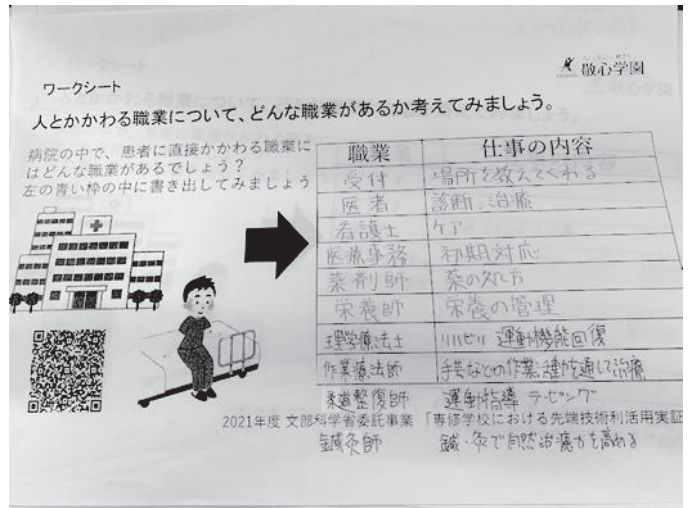 敬心学園
ワークシート
人とかかわる職業について、どんな職業があるか考えてみましょう。
病院の中で、患者に直接かかわる職業に
はどんな職業があるでしょう？
左の青い枠の中に書き出してみましょう
職業 仕事の内容
受付 場所を教えてくれる
医者 診断、治療
看護士 ケア
医療事務 初期対応
薬剤師 薬の処方
栄養師 栄養の管理
理学療法士 リハビリ 運動機能回復
作業療法師 手芸などの作業活動を通して治療
柔道整復師 運動指導 テーピング
2021年度 文部科学省委託事業 「専修学校における先端技術利活用実証
鍼灸師 鍼・灸で自然治癒力を高める